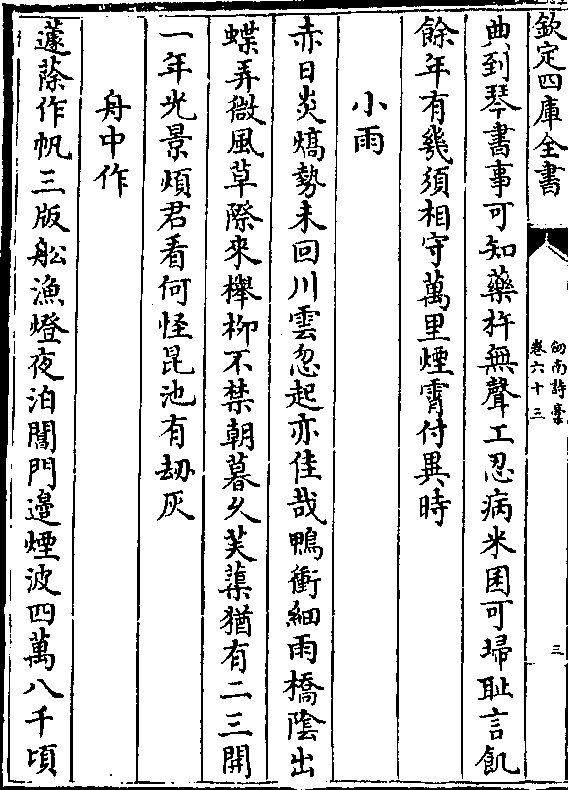 欽定四庫全書
劍南詩稾
卷六十三
三
典到琴書事可知藥杵無聲工忍病米囷可埽耻言飢
餘年有幾須相守萬里煙霄付異時
小雨
赤日炎熇勢未回川雲忽起亦佳哉鴨衝細雨橋陰出
蝶弄微風草際來櫸柳不禁朝暮久芙蕖猶有二三開
一年光景煩君看何怪昆池有劫灰
舟中作
蘧蒢作帆三版船漁燈夜泊閶門邊煙波四萬八千頃